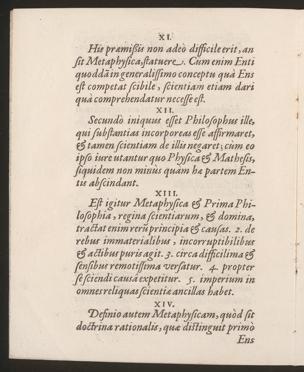 XI.
His præmissis non adeò difficile erit, an
sit Metaphysica, statuere. Cum enim Enti
quoddā in generalissimo conceptu quà Ens
est competat scibile, scientiam etiam dari
quâ comprehendatur necesse est.
XII.
Secundò iniquus esset Philosophus ille,
qui substantias incorporeas esse affirmaret,
& tamen scientiam de illis negaret; cùm eo
ipso iure utantur quo Physica & Mathesis,
siquidem non minùs quàm hæ partem En-
tis abscindant.
XIII.
Est igitur Metaphysica & Prima Phi-
losophia, regina scientiarum, & domina,
tractat enim rerū principia & causas. 2. de
rebus immaterialibus, incorruptibilibus
& actibus puris agit. 3. circa difficilima &
sensibus remotissima versatur. 4. propter
se sciendi causâ expetitur. 5. imperium in
omnes reliquas scientiæ ancillas habet.
XIV.
Definio autem Metaphysicam, quòd sit
doctrina rationalis, quæ distinguit primò
Ens